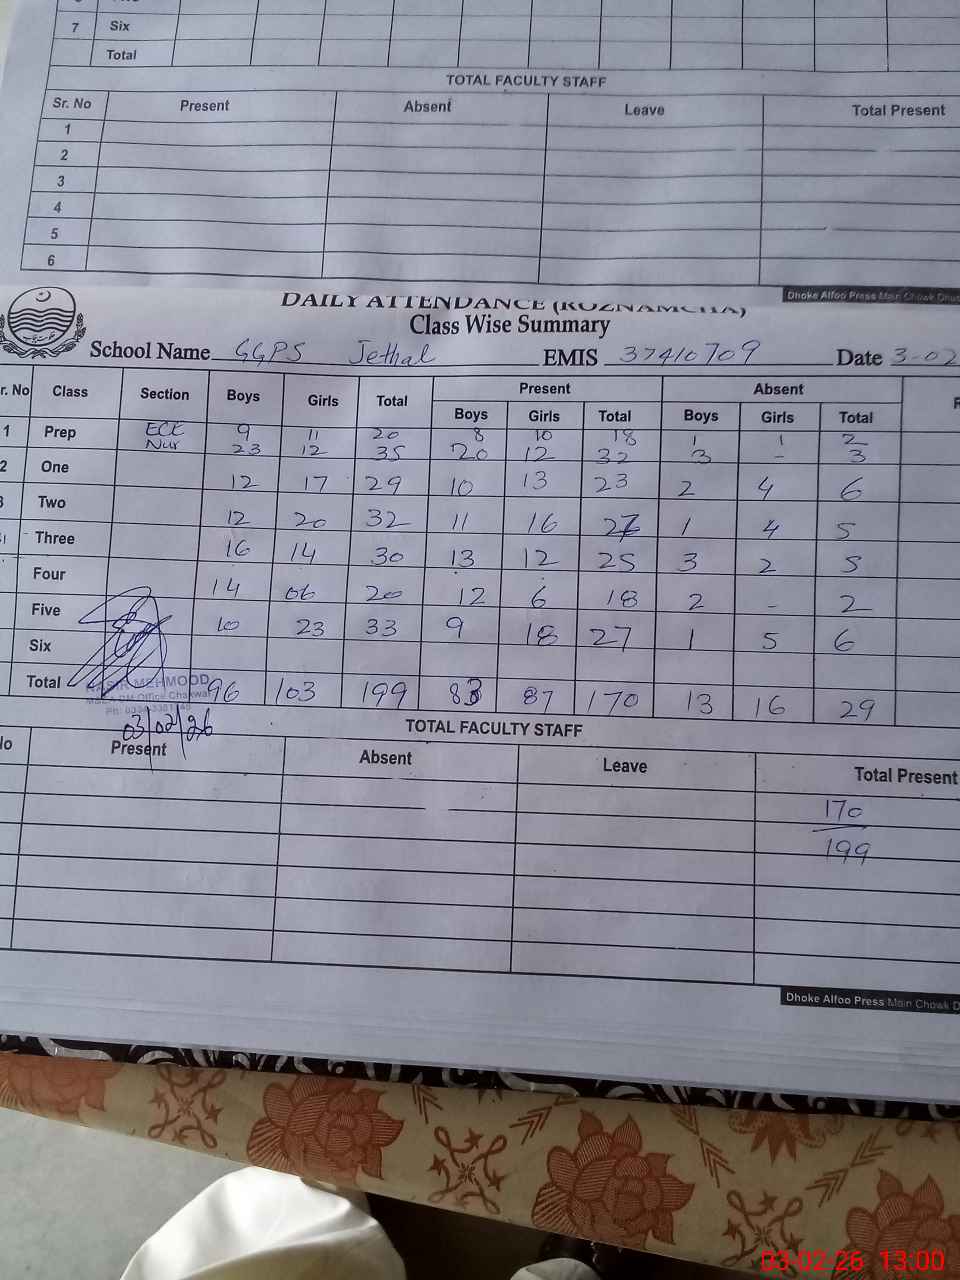 7 Six
Total
TOTAL FACULTY STAFF
Sr. No Present Absent Leave Total Present
1
2
3
4
5
6
Dhoke Alfoo Press Main Chowk
DAILY ATTENDANCE (ROZNAMCHA)
Class Wise Summary
School Name GGPS Jethal EMIS 37410709 Date 3-02
r. No Class Section Boys Girls Total Present Absent
Boys Girls Total Boys Girls Total
1 Prep ECE 9 11 20 8 10 18 1 1 2
Nur 23 12 35 20 12 32 3 - 3
2 One 12 17 29 10 13 23 2 4 6
3 Two 12 20 32 11 16 27 1 4 5
Three 16 14 30 13 12 25 3 2 5
Four 14 06 20 12 6 18 2 - 2
Five 10 23 33 9 18 27 1 5 6
Six
Total 96 103 199 83 87 170 13 16 29
MEHMOOD
Office Chakwal
03/02/26
TOTAL FACULTY STAFF
No Present Absent Leave Total Present
170
199
Dhoke Alfoo Press Main Chowk D
03-02-26 13:00